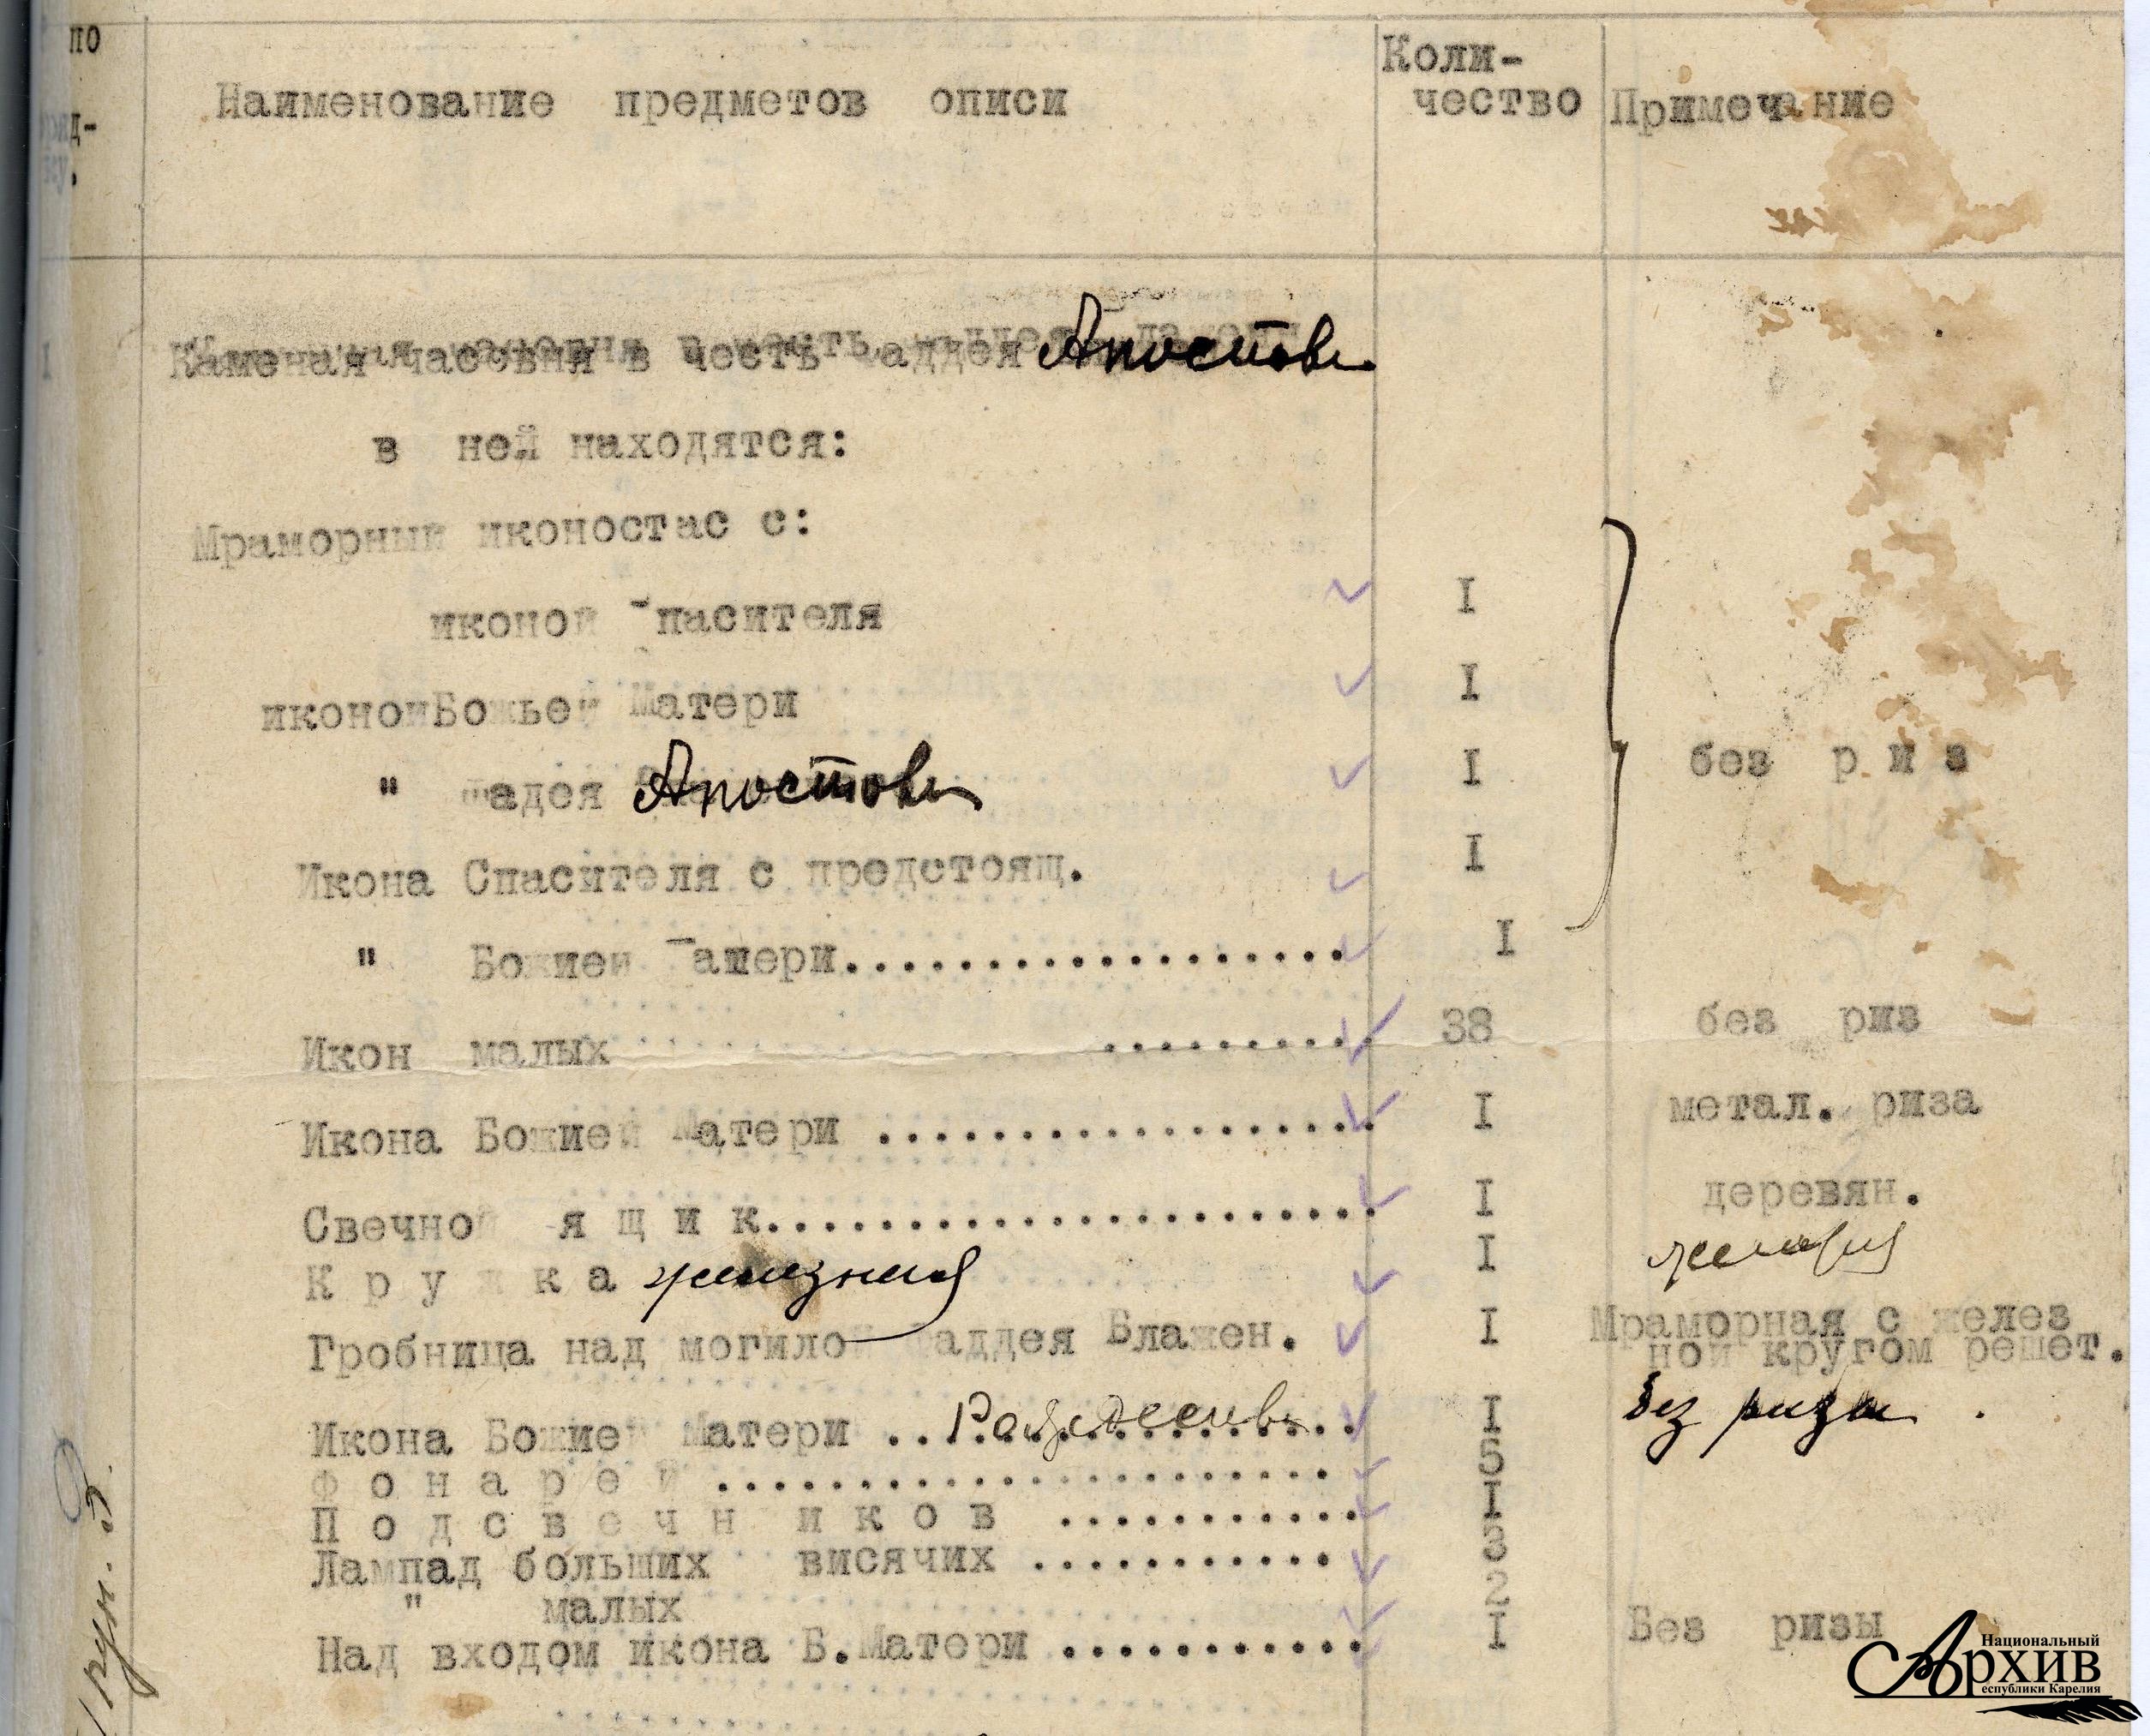 по
Наименование предметов описи
Коли-
чество
Примечание
I
Каменая часовня в честь аддея Апостова
в ней находятся:
Мраморный иконостас с:
иконой пасителя I
иконойБожьей Матери I
" адея Апостова I без р и з
Икона Спасителя с предстоящ. I
" Божией атери................... I
Икон малых .......... 38 без риз
Икона Божией Матери .................. I метал. риза
Свечной я щ и к...................... I деревян.
К р у ж к а железная I
Гробница над могилой аддея Блажен. I Мраморная с желез
ной кругом решет.
Икона Божией Матери .. I Без ризы .
Ф о н а р е й ...................... 5
П о д с в е ч н и к о в ........... I
Лампад больших висячих ........... 3
" малых 2
Над входом икона Б.Матери ........... I Без ризы
Национальный
Архив
еспублики Карелия